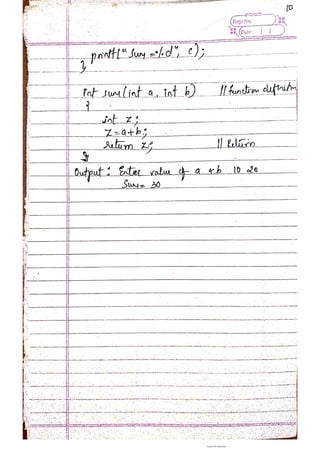 10
Page No.
Date: | |
printf("Sum =%d", c);
}
int sum(int a, int b) //function definition
{
int z;
z=a+b;
return z; // Return
}
Output: Enter value of a & b 10 20
Sum= 30